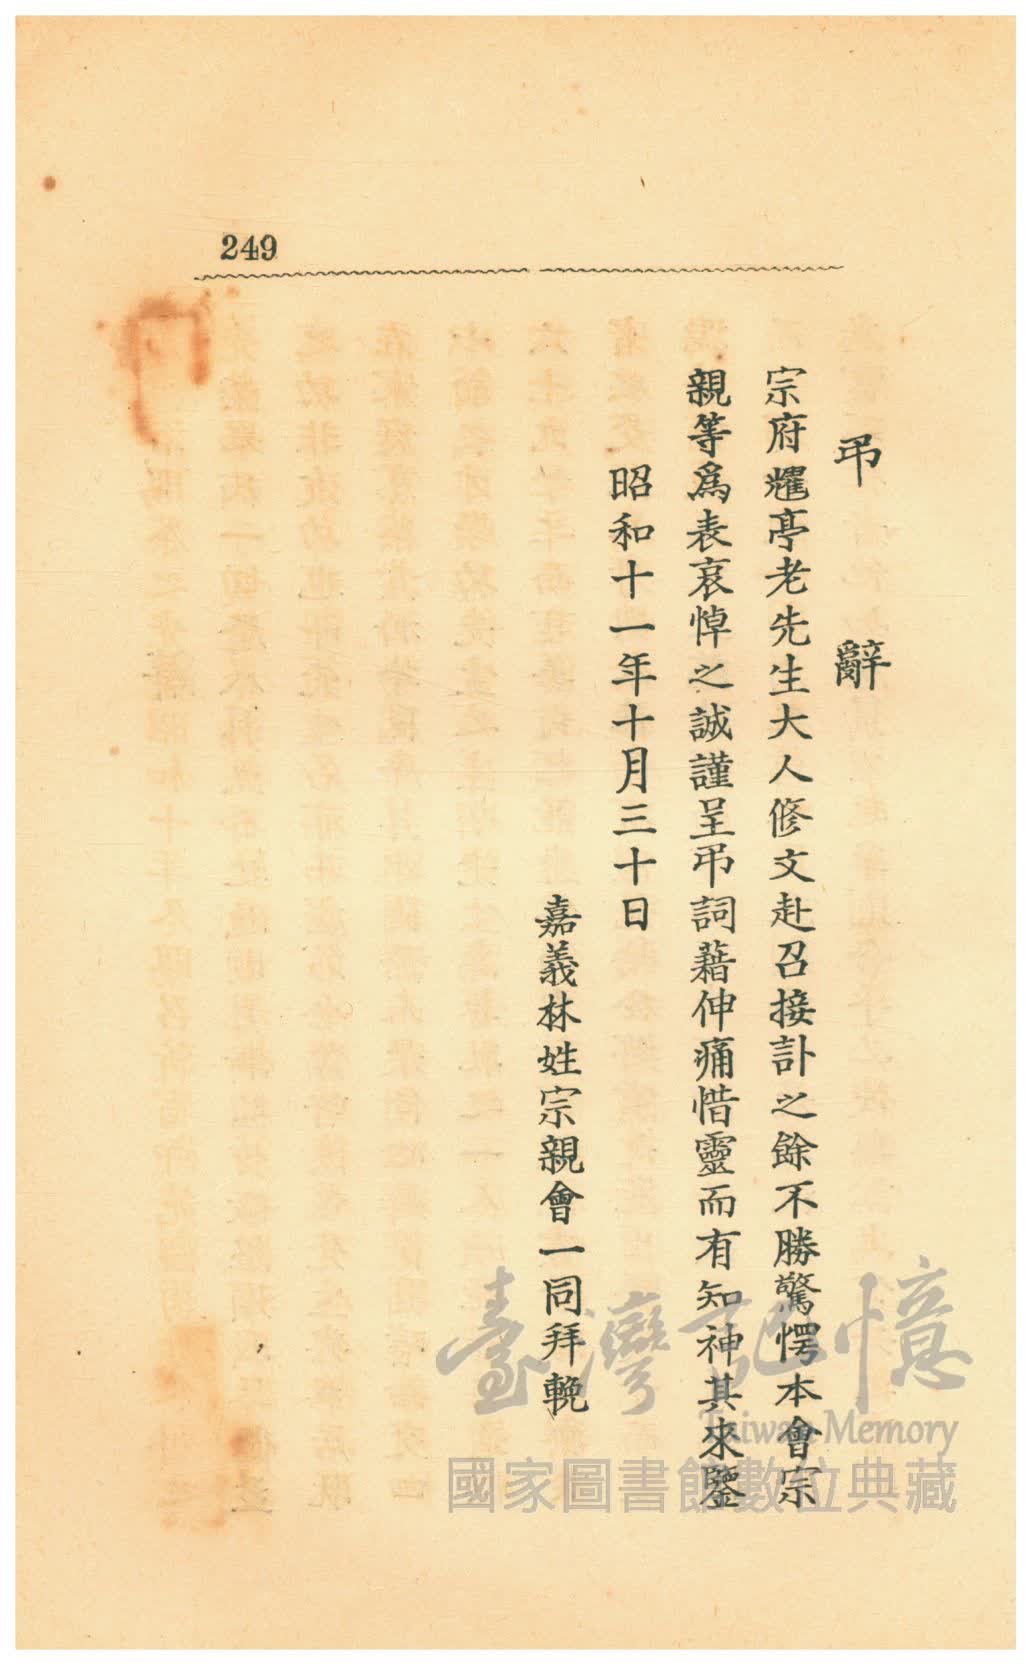 249
弔辭
宗府耀亭老先生大人修文赴召接訃之餘不勝驚愕本會宗
親等爲表哀悼之誠謹呈弔詞藉伸痛惜靈而有知神其來鑒
昭和十一年十月三十日
嘉義林姓宗親會一同拜輓
臺灣記憶
Taiwan Memory
國家圖書館數位典藏